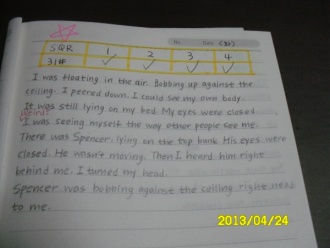 No. Date
SQR 1 2 3 4
I was floating in the air. Bobbing up against the
ceiling. I peered down. I could see my own body.
It was still lying on my bed. My eyes were closed.
weird!
I was seeing myself the way other people see me.
There was Spencer, lying on the top bunk. His eyes were
closed. He wasn't moving. Then I heard him right
behind me. I turned my head.
Spencer was bobbing against the ceiling right next
to me.
2013/04/24